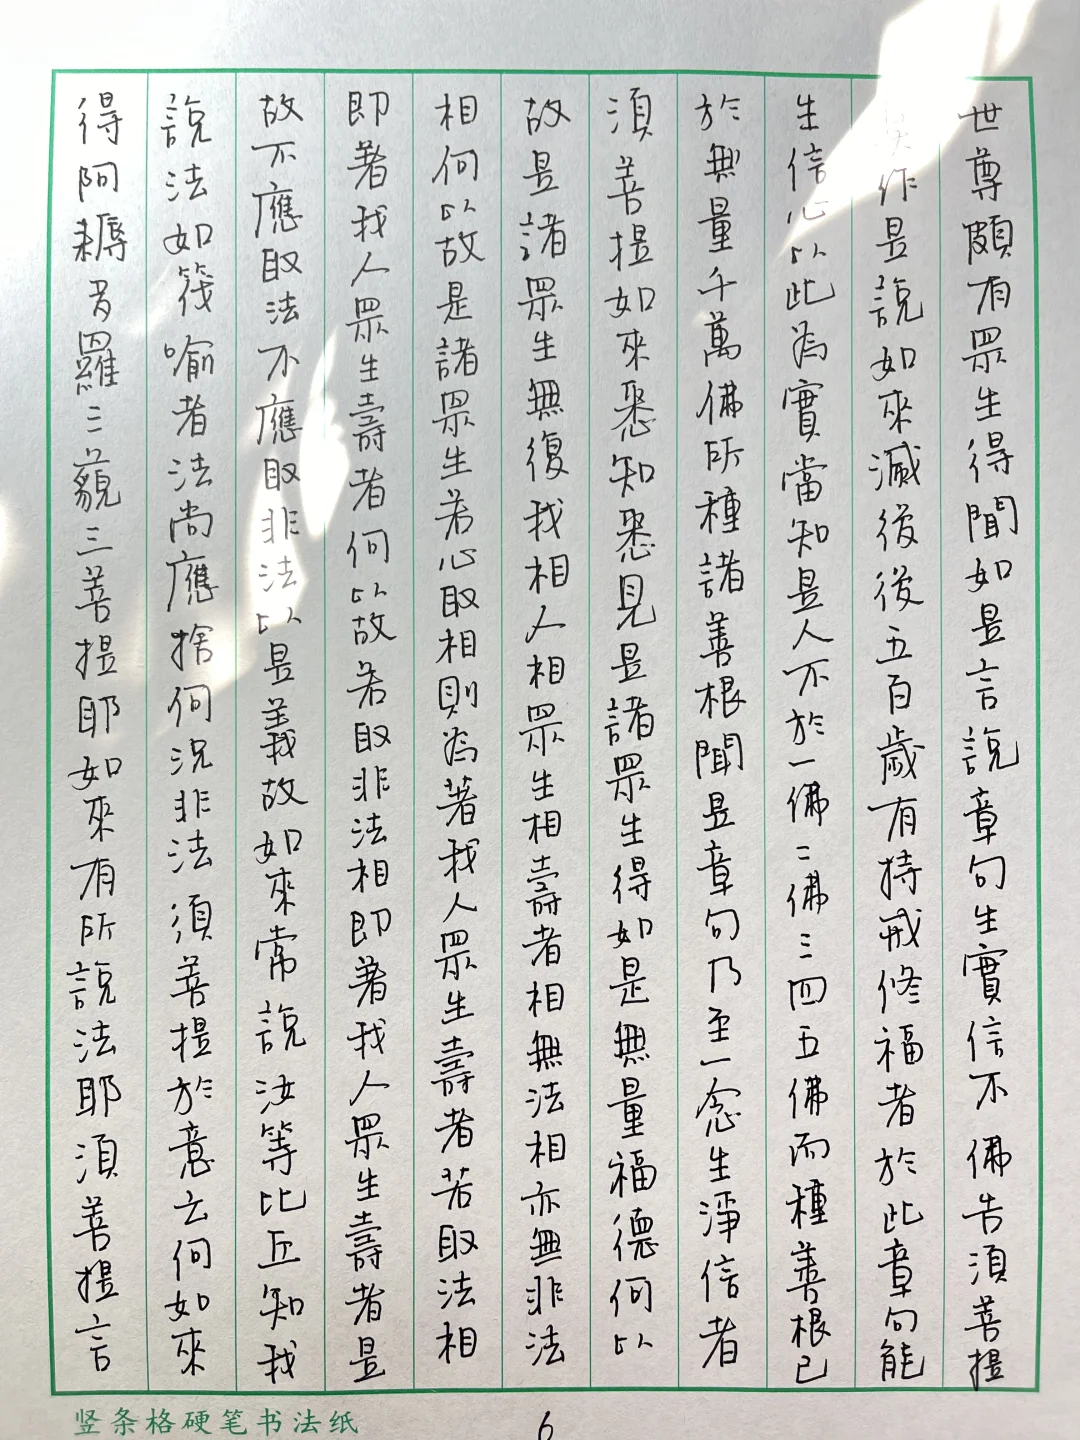 世尊頗有眾生得聞如是言說章句生實信不佛告須菩提
莫作是說如來滅後後五百歲有持戒修福者於此章句能
生信心以此為實當知是人不於一佛二佛三四五佛而種善根已
於無量千萬佛所種諸善根聞是章句乃至一念生淨信者
須菩提如來悉知悉見是諸眾生得如是無量福德何以
故是諸眾生無復我相人相眾生相壽者相無法相亦無非法
相何以故是諸眾生若心取相則為著我人眾生壽者若取法相
即著我人眾生壽者何以故若取非法相即著我人眾生壽者是
故不應取法不應取非法以是義故如來常說汝等比丘知我
說法如筏喻者法尚應捨何況非法須菩提於意云何如來
得阿耨多羅三藐三菩提耶如來有所說法耶須菩提言
竖条格硬笔书法纸
6